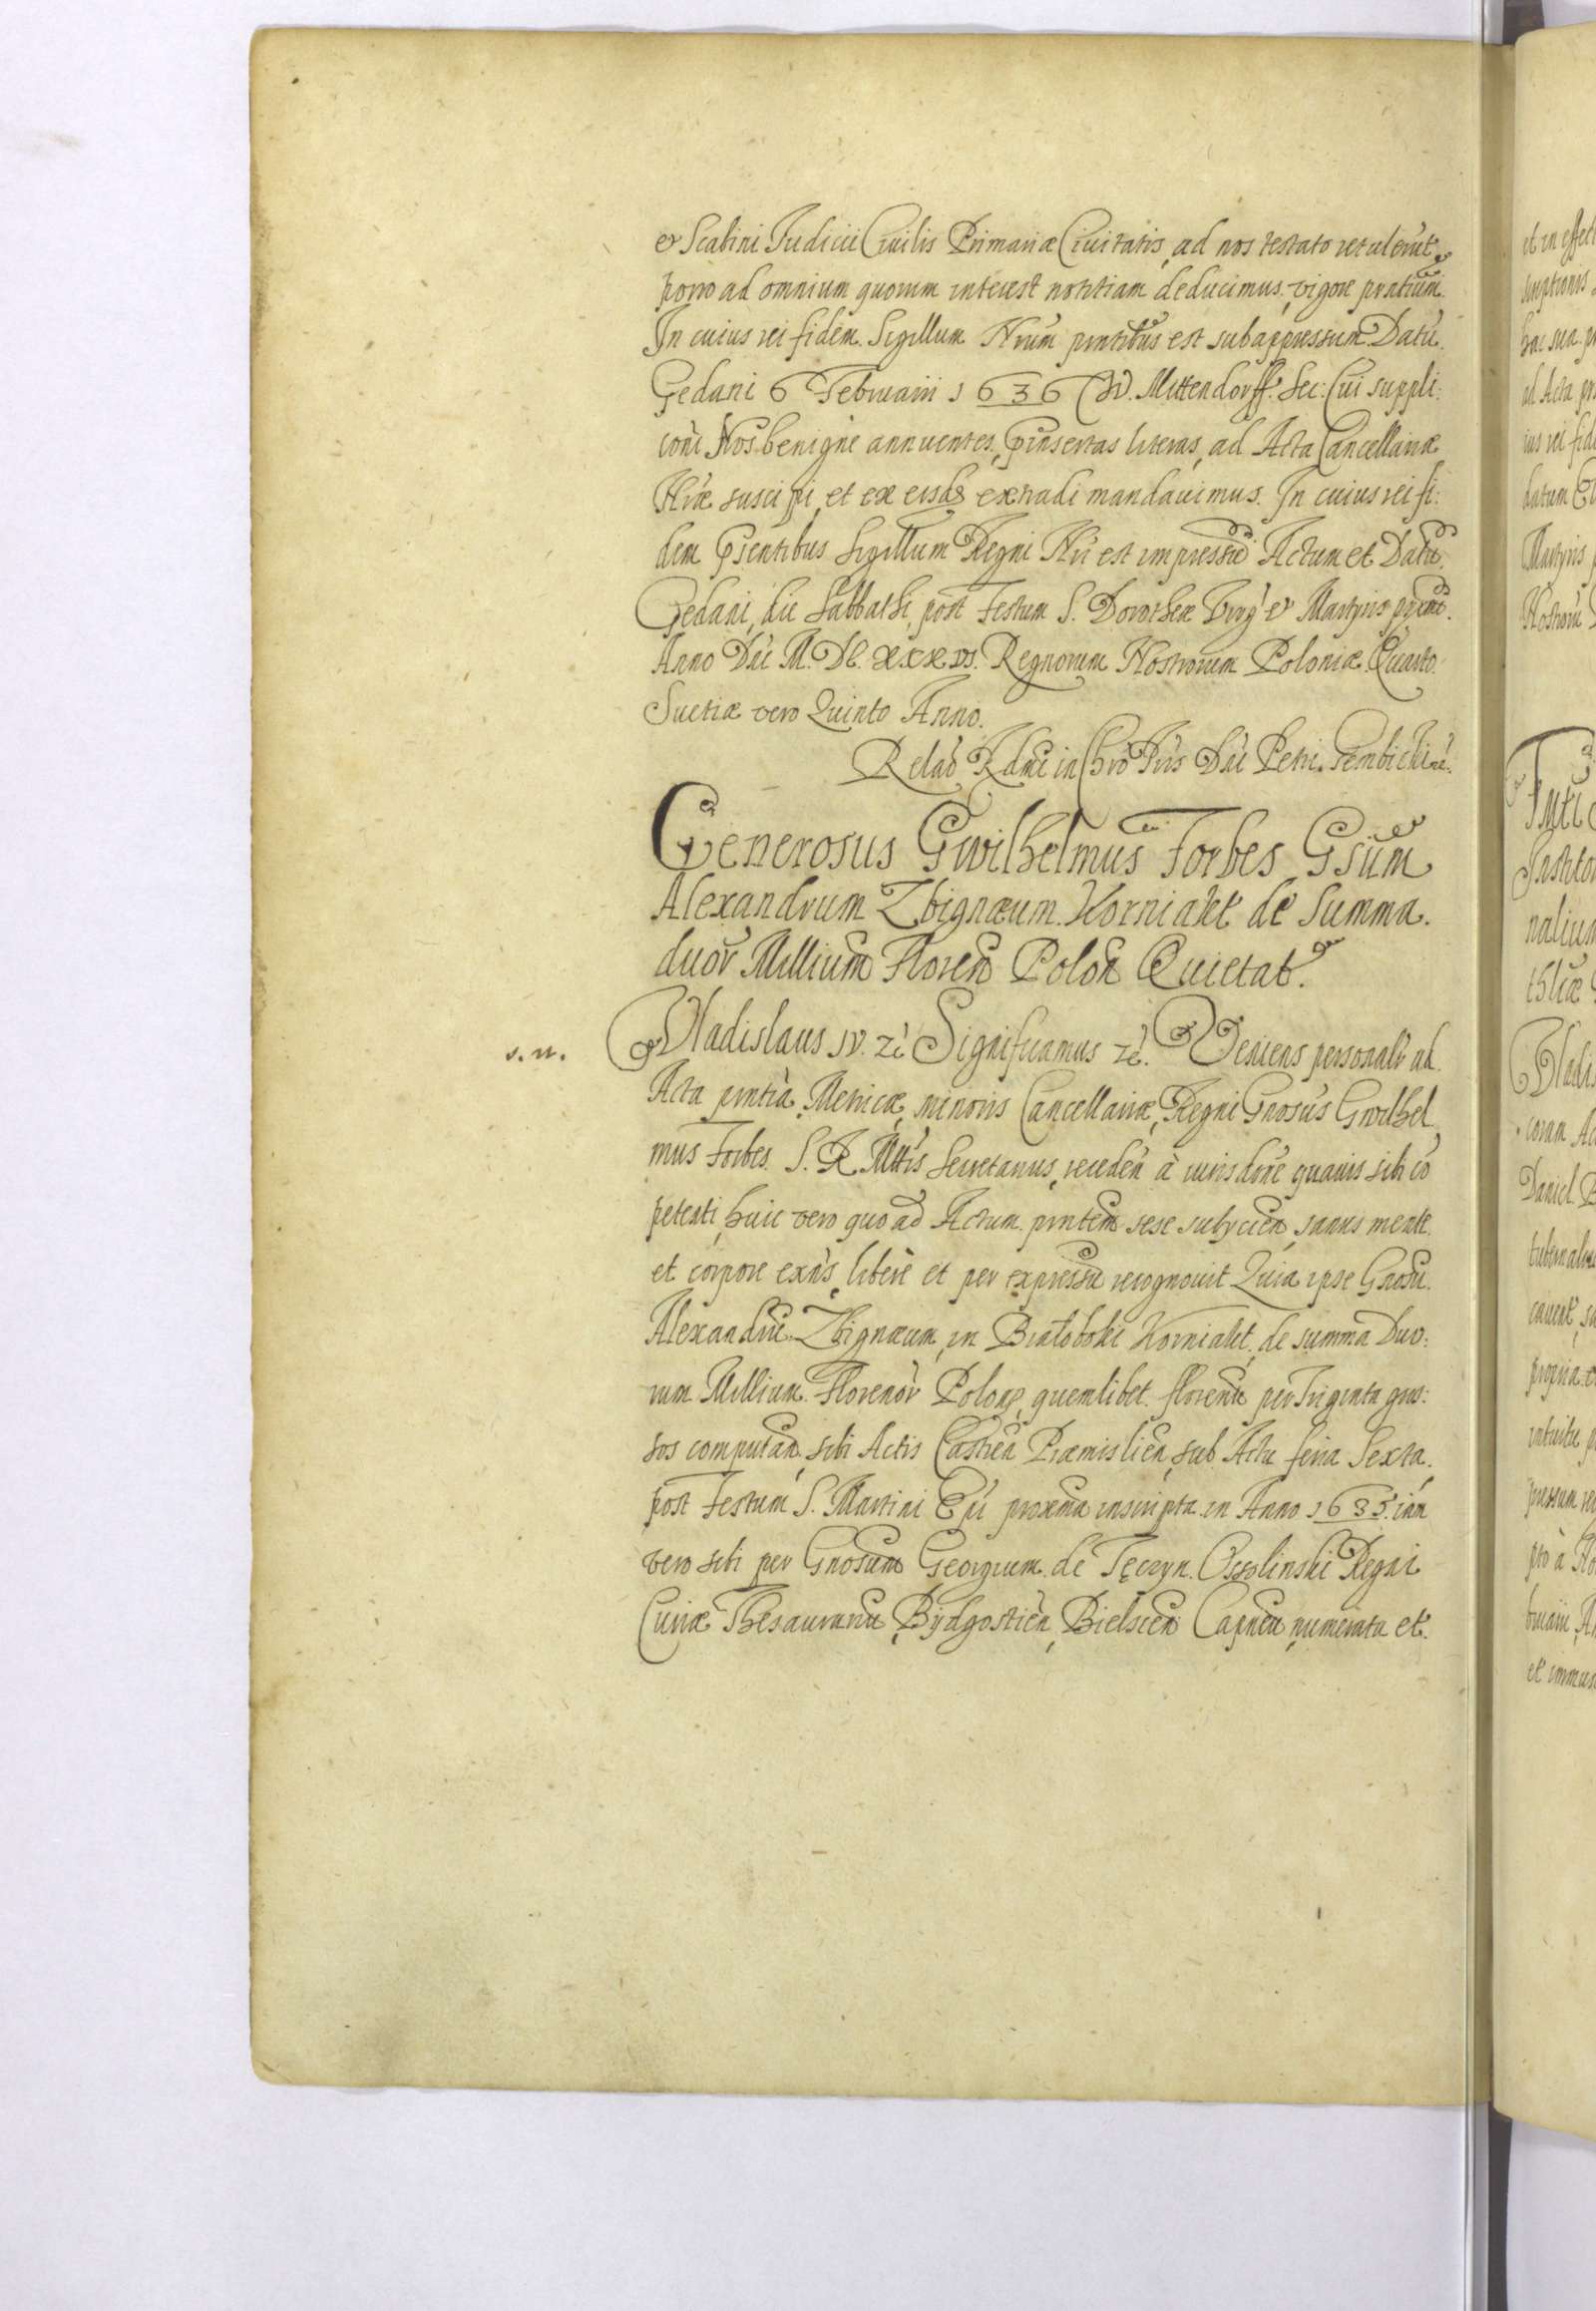 et Scabini Judicii Civilis Primariæ Civitatis, ad nos testato retulerūt,
porro ad omnium quorum interest notitiam deducimus. vigore pn̄tium.
In cuius rei fidem. Sigillum Nr̄um pn̄tibus est subappressum Datū.
Gedani 6 Februarii 1636 W. Mittendorff. Sec: Cui suppli:
coni Nos benignè annuentes, p̄insertas literas, ad Acta Cancellariæ
Nr̄æ suscipi, et ex eisdē extradi mandavimus. In cuius rei fi:
dem p̄sentibus Sigillum Regni Nr̄i est impressū Actum et Datū.
Gedani, die Sabbathi, post Festum S. Dorotheæ Virg̀ et Martyris pxmo.
Anno Dn̄i M.DC.XXXVI. Regnorum Nostrorum Poloniæ Quarto.
Suetiæ vero Quinto Anno.
Relaō Rdm̄i in Chrō Pr̄is Dn̄i Petri Gembicki
Generosus Gwilhelmus Forbes Gsūm
Alexandrum Zbignæum Korniakt de Summa.
duor̄ Millium Floren̄ Polon̄ Quietat.
s. n. Vladislaus IV. zc̀ Significamus zc̀. Veniens personalr̄ ad
Acta pn̄tia Metricæ, minoris Cancellariæ, Regni Gn̄osus Gwilhel
mus Forbes. S. R. Mt̄is Secretarius, receden̄ à iurisdōne quavis sibi cō
petenti, huic vero quo ad Actum pn̄tem sese subycien̄, sanus mente
et corpore exn̄s, liberè et per expressū recognovit Quia ipse Gn̄osū.
Alexandrū. Zbignæum, in Białoboki Korniakt, de summa Duo:
rum Millium Florenor̄ Polon, quemlibet. florenū per Triginta gros:
sos computan̄, sibi Actis Castren̄ Præmislien̄, sub Actu feria Sexta.
post Festum S. Martini Ep̄i proxima inscripta in Anno 1635. iam
vero sibi per Gn̄osum Georgium de Tęczyn Ossolinski Regni
Curiæ Thesaurariū, Bydgostien̄, Bielscen̄ Capneū, numerata et.